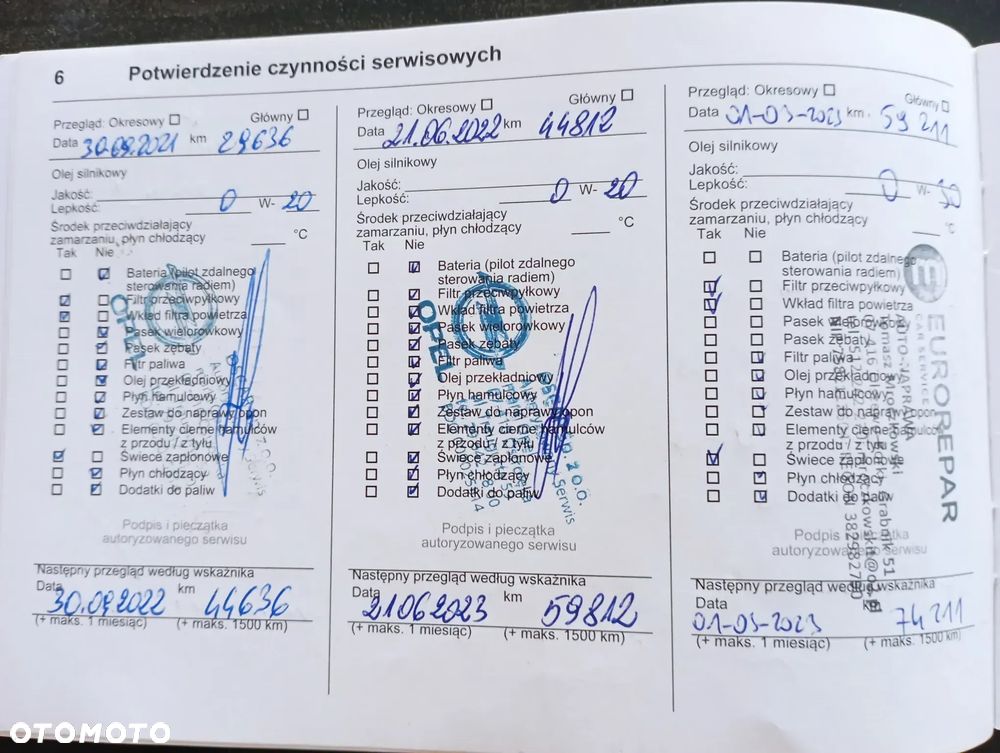 6 Potwierdzenie czynności serwisowych
Przegląd: Okresowy Główny
Data 30.09.2021 km 29636
Olej silnikowy
Jakość:
Lepkość: 0 W- 20
Środek przeciwdziałający
zamarzaniu, płyn chłodzący °C
Tak Nie
Bateria (pilot zdalnego
sterowania radiem)
Filtr przeciwpyłkowy
Wkład filtra powietrza
Pasek wielorowkowy
Pasek zębaty
Filtr paliwa
Olej przekładniowy
Płyn hamulcowy
Zestaw do naprawy opon
Elementy cierne hamulców
z przodu / z tyłu
Świece zapłonowe
Płyn chłodzący
Dodatki do paliw
OPEL
Podpis i pieczątka
autoryzowanego serwisu
Następny przegląd według wskaźnika
Data 30.09.2022 km 44636
(+ maks. 1 miesiąc) (+ maks. 1500 km)
Przegląd: Okresowy Główny
Data 21.06.2022 km 44812
Olej silnikowy
Jakość:
Lepkość: 0 W- 20
Środek przeciwdziałający
zamarzaniu, płyn chłodzący °C
Tak Nie
Bateria (pilot zdalnego
sterowania radiem)
Filtr przeciwpyłkowy
Wkład filtra powietrza
Pasek wielorowkowy
Pasek zębaty
Filtr paliwa
Olej przekładniowy
Płyn hamulcowy
Zestaw do naprawy opon
Elementy cierne hamulców
z przodu / z tyłu
Świece zapłonowe
Płyn chłodzący
Dodatki do paliw
OPEL
Serwis
Podpis i pieczątka
autoryzowanego serwisu
Następny przegląd według wskaźnika
Data 21.06.2023 km 59812
(+ maks. 1 miesiąc) (+ maks. 1500 km)
Przegląd: Okresowy Główny
Data 01-03-2023 km. 59 211
Olej silnikowy
Jakość:
Lepkość: 0 W- 30
Środek przeciwdziałający
zamarzaniu, płyn chłodzący °C
Tak Nie
Bateria (pilot zdalnego
sterowania radiem)
Filtr przeciwpyłkowy
Wkład filtra powietrza
Pasek wielorowkowy
Pasek zębaty
Filtr paliwa
Olej przekładniowy
Płyn hamulcowy
Zestaw do naprawy opon
Elementy cierne hamulców
z przodu / z tyłu
Świece zapłonowe
Płyn chłodzący
Dodatki do paliw
EUROREPAR
CAR SERVICE
AUTO-NAPRAWA
Podpis i pieczątka
autoryzowanego serwisu
Następny przegląd według wskaźnika
Data 01-03-2023 km 74 211
(+ maks. 1 miesiąc) (+ maks. 1500 km)
OTOMOTO